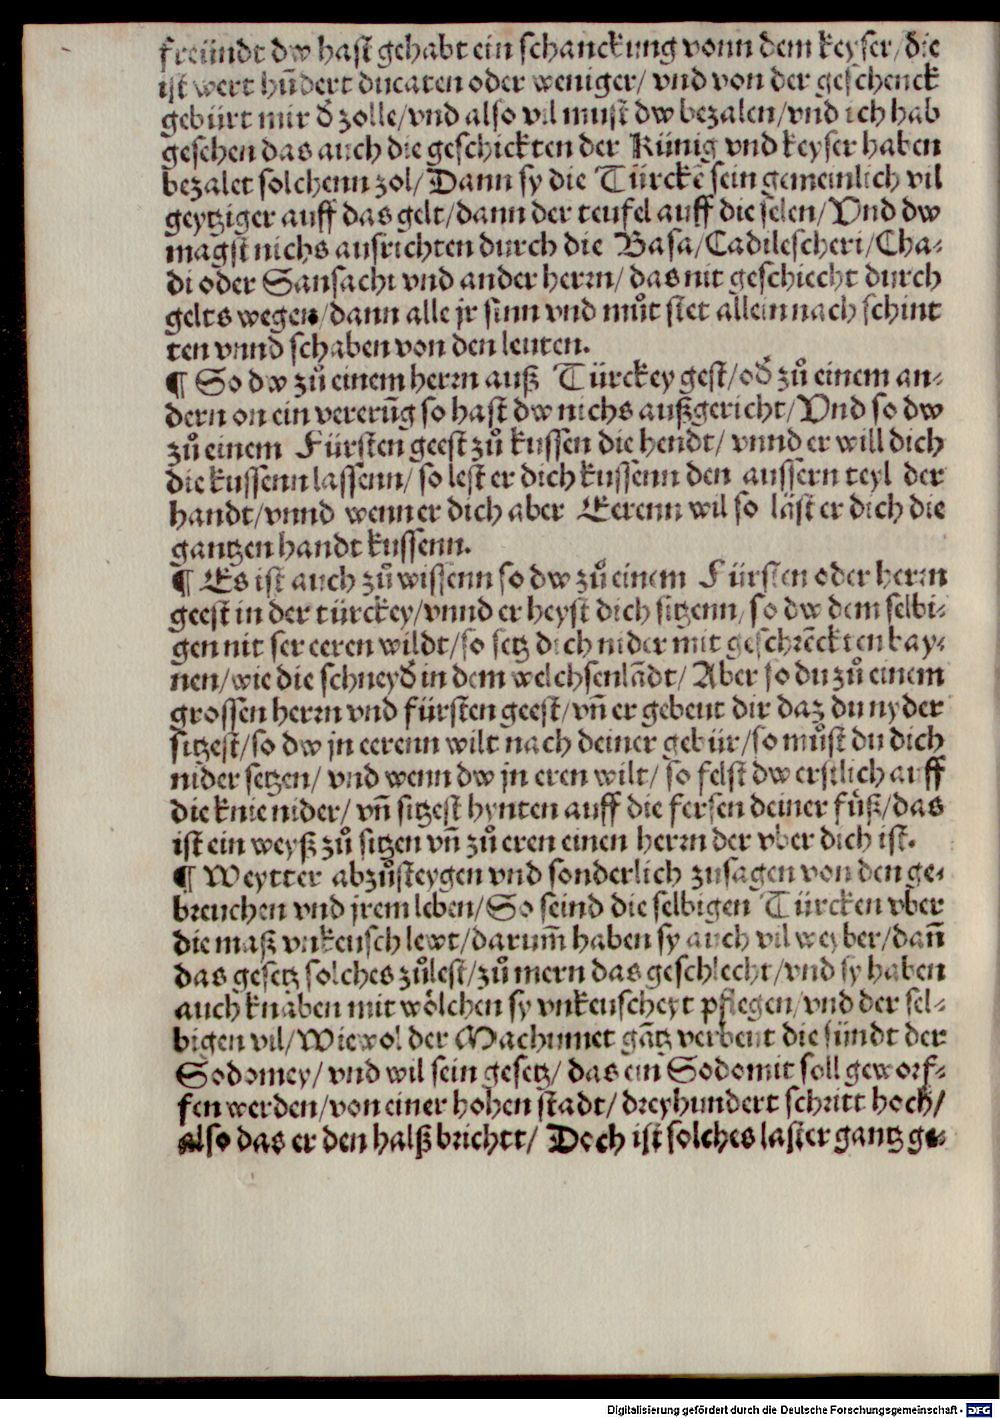 freündt dw hast gehabt ein schanckung vonn dem keyser/die
ist wert hūdert ducaten oder weniger/ vnd von der geschenck
gebürt mir d̕ zolle/vnd also vil must dw bezalen/vnd ich hab
gesehen das auch die geschickten der Künig vnd keyser haben
bezalet solchenn zol/ Dann sy die Türckē sein gemeinlich vil
geytziger auff das gelt/dann der teufel auff die selen/Vnd dw
magst nichs ausrichten durch die Basa/Cadilescheri/Cha⸗
di oder Sansacht vnd ander herrn/ das nit geschiecht durch
gelts wegen/dann alle jr sinn vnd můt stet allein nach schint
ten vnnd schaben von den leuten.
¶ So dw zů einem herrn auß Türckey gest/od̕ zů einem an⸗
dern on ein vererūg so hast dw nichs außgericht/Vnd so dw
zů einem Fürsten geest zů kussen die hendt/ vnnd er will dich
die kussenn lassenn/ so lest er dich kussenn den aussern teyl der
handt/vnnd wenn er dich aber Eerenn wil so läst er dich die
gantzen handt kussenn.
¶ Es ist auch zů wissenn so dw zů einem Fürsten oder herrn
geest in der türckey/vnnd er heyst dich sitzenn/ so dw dem selbi⸗
gen nit ser eeren wildt/so setz dich nider mit geschrēckten bay⸗
nen/wie die schneyd̕ in dem welchsenlādt/ Aber so du zů einem
grossen herrn vnd fürsten geest/vn̄ er gebeut dir daz du nyder
sitzest/so dw jn eerenn wilt nach deiner gebür/so můst du dich
nider setzen/ vnd wenn dw jn eren wilt/ so felst dw erstlich auff
die knie nider/ vn̄ sitzest hynten auff die fersen deiner füß/das
ist ein weyß zů sitzen vn̄ zů eren einen herrn der vber dich ist.
¶ Weytter abzůsteygen vnd sonderlich zusagen von den ge⸗
breuchen vnd jrem leben/So seind die selbigen Türcken vber
die maß vnkeusch lewt/darum̄ haben sy auch vil weyber/dan̄
das gesetz solches zůlest/zů mern das geschlecht/vnd sy haben
auch knaben mit wölchen sy vnkeuscheyt pflegen/vnd der sel⸗
bigen vil/Wiewol der Machumet gātz verbeut die sündt der
Sodomey/ vnd wil sein gesetz/ das ein Sodomit soll geworf⸗
fen werden/von einer hohen stadt/ dreyhundert schritt hoch/
also das er den halß brichtt/ Doch ist solches laster gantz ge⸗
Digitalisierung gefördert durch die Deutsche Forschungsgemeinschaft - DFG